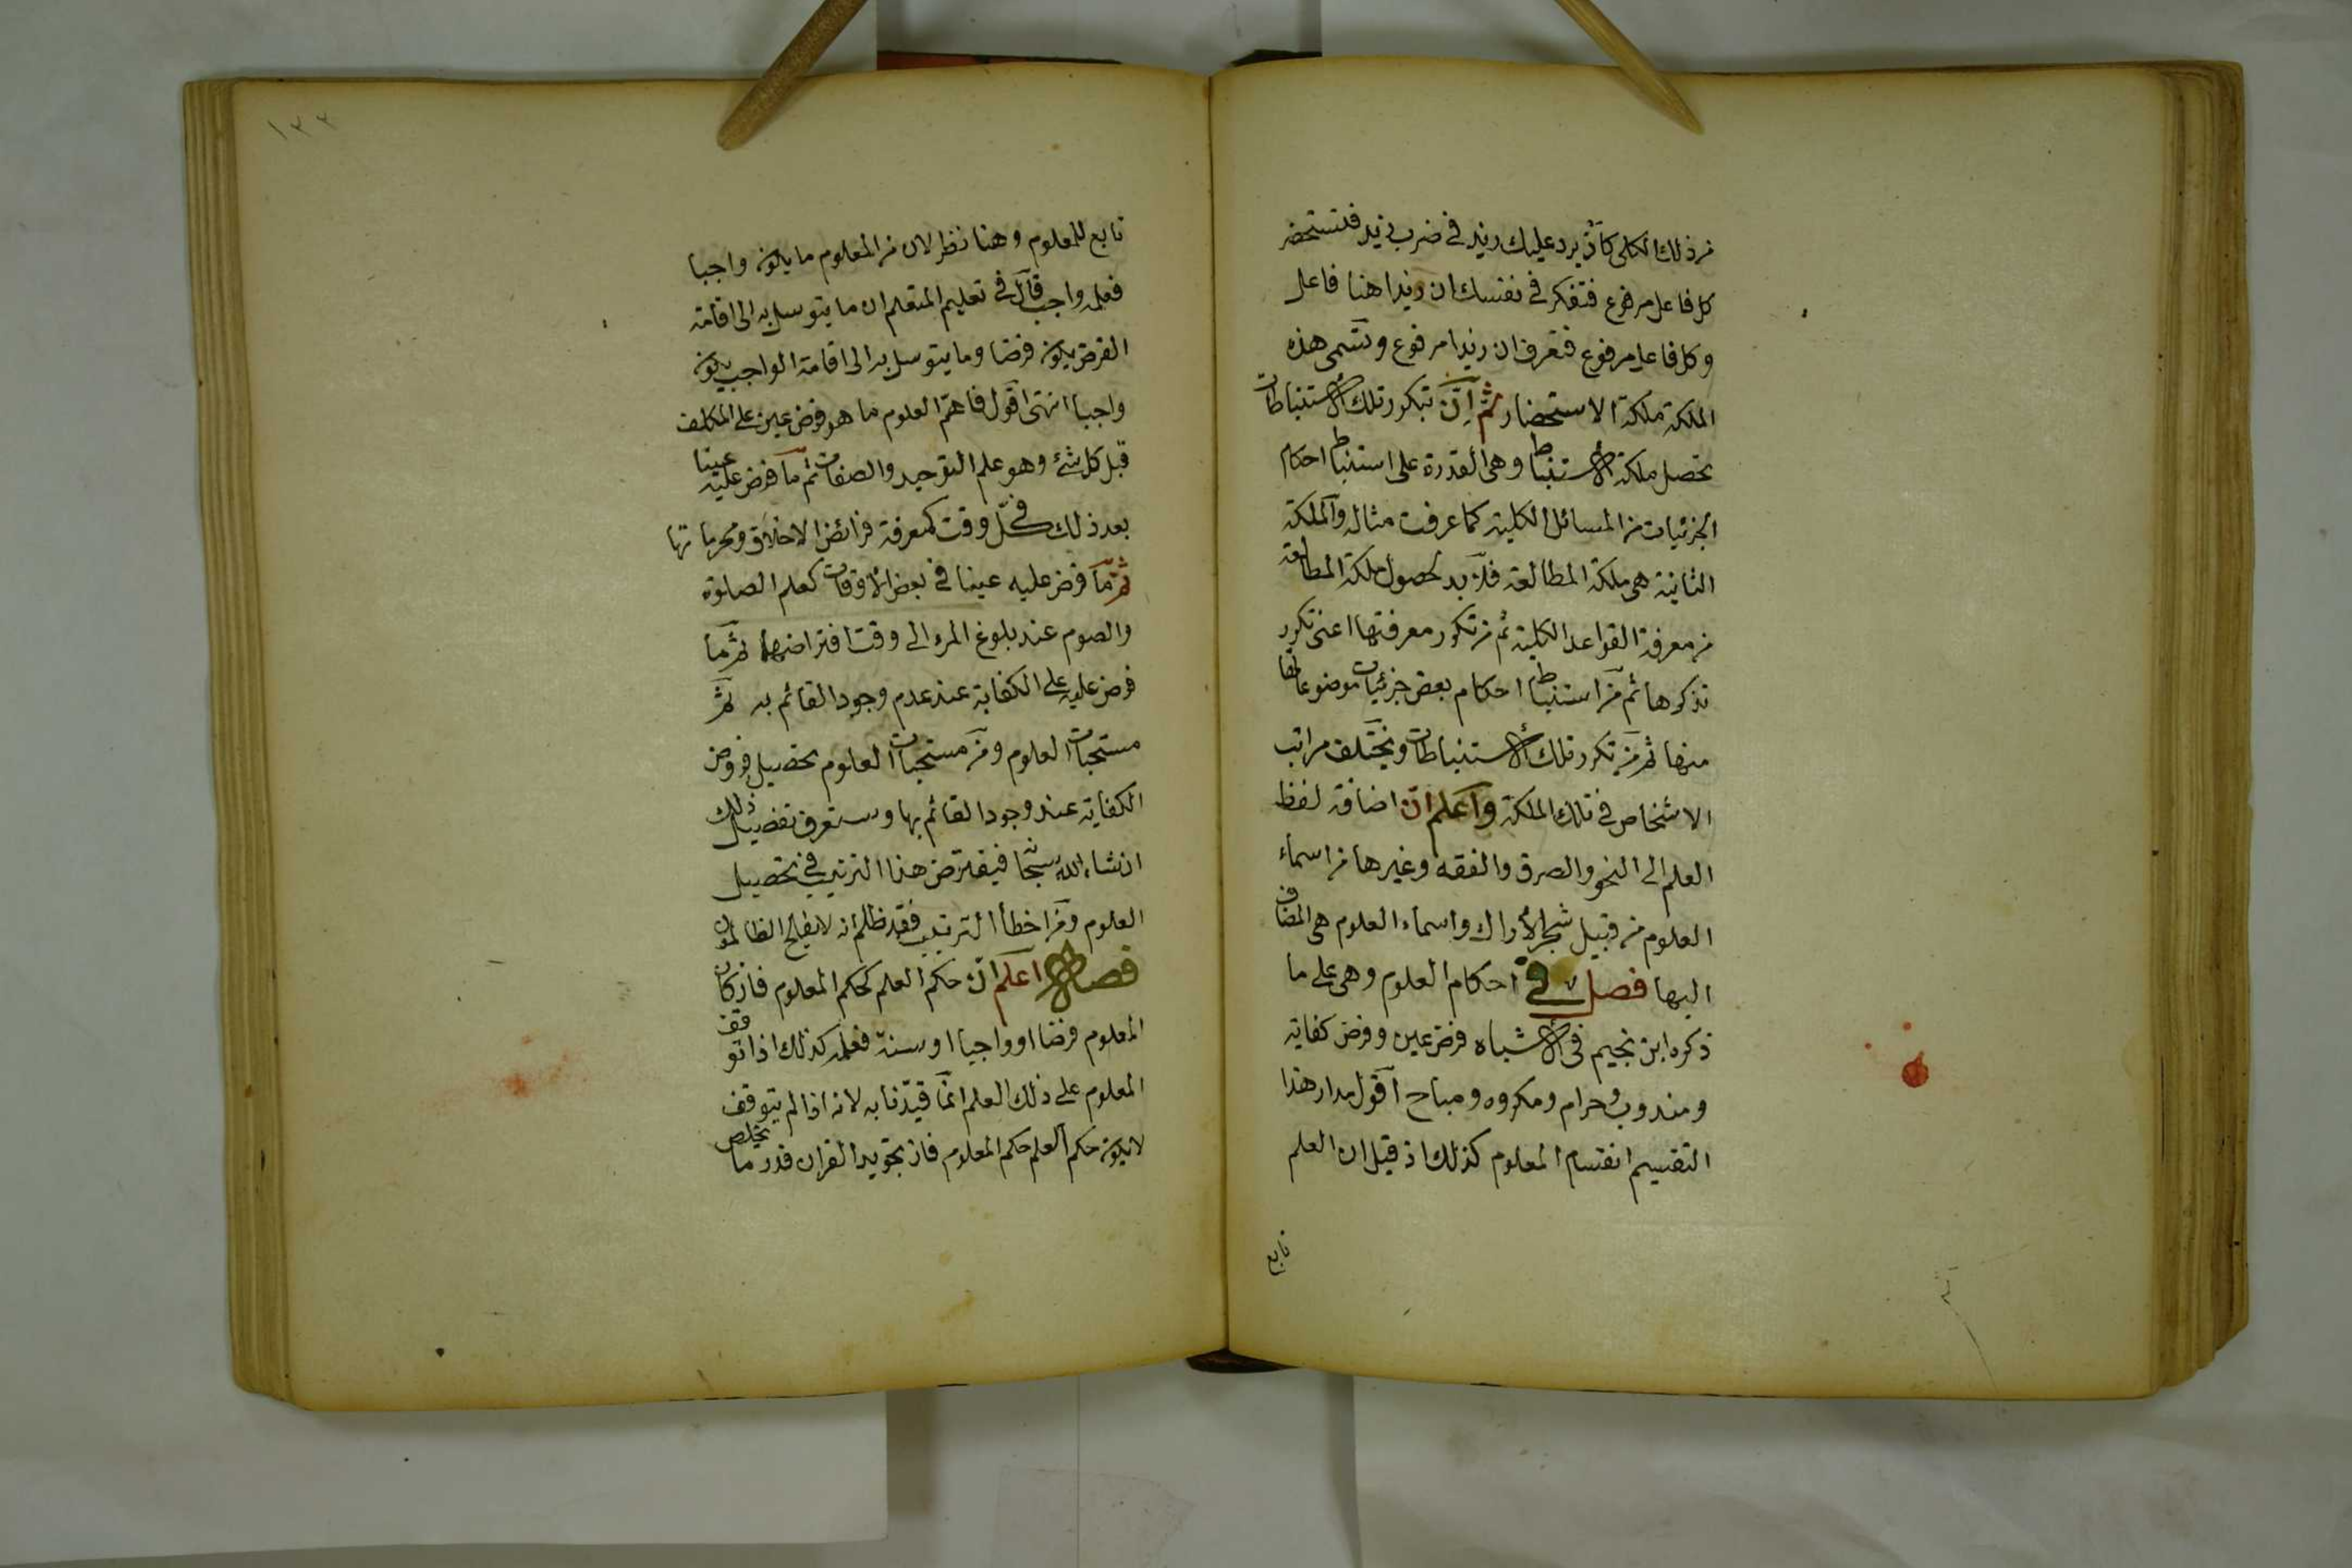 من ذلك الكلى كأن يرد عليك زيد في ضرب زيد فتستحضر
كل فاعل مرفوع فتفكر في نفسك ان زيدا هنا فاعل
وكل فاعل مرفوع فتعرف ان زيدا مرفوع وتسمى هذه
الملكة ملكة الاستحضار ثم إن بتكرر تلك الاستنباطات
تحصل ملكة الاستنباط وهى القدرة على استنباط احكام
الجزئيات من المسائل الكلية كما عرفت مثاله والملكة
الثانية هى ملكة المطالعة فلا بد لحصول ملكة المطالعة
من معرفة القواعد الكلية ثم من تكرر معرفتها اعنى تكرر
تذكرها ثم من استنباط احكام بعض جزئيات موضوعاتها
منها ثم من تكرر تلك الاستنباطات ويختلف مراتب
الاشخاص في تلك الملكة واعلم ان اضافة لفظ
العلم الى النحو والصرف والفقه وغيرها من اسماء
العلوم من قبيل شجر الأراك واسماء العلوم هى المضاف
اليها فصل في احكام العلوم وهى على ما
ذكره ابن نجيم في الاشباه فرض عين وفرض كفاية
ومندوب وحرام ومكروه ومباح أقول مدار هذا
التقسيم انقسام المعلوم كذلك اذ قيل ان العلم
تابع
١٣٣
تابع للمعلوم وهنا نظر لان من المعلوم ما يكون واجبا
فعلمه واجب قال في تعليم المتعلم ان ما يتوسل به الى اقامة
الفرض يكون فرضا وما يتوسل به الى اقامة الواجب يكون
واجبا انتهى اقول فاهم العلوم ما هو فرض عين على المكلف
قبل كل شئ وهو علم التوحيد والصفات ثم ما فرض عليه عينا
بعد ذلك في كل وقت كمعرفة فرائض الاخلاق ومحرماتها
ثم ما فرض عليه عينا في بعض الاوقات كعلم الصلوة
والصوم عند بلوغ المرء الى وقت افتراضهما ثم ما
فرض عليه على الكفاية عند عدم وجود القائم به ثم
مستحبات العلوم ومن مستحبات العلوم تحصيل فروض
الكفاية عند وجود القائم بها وستعرف تفصيل ذلك
انشاء الله سبحا فيفترض هذا الترتيب في تحصيل
العلوم ومن اخطأ الترتيب فقد ظلم انه لا يفلح الظالمون
فصل اعلم ان حكم العلم كحكم المعلوم فان كان
المعلوم فرضا او واجبا او سنة فعلمه كذلك اذا توقف
المعلوم على ذلك العلم انما قيدنا به لانه اذا لم يتوقف
لا يكون حكم العلم حكم المعلوم فان تجويد القران قدر ما يخلص